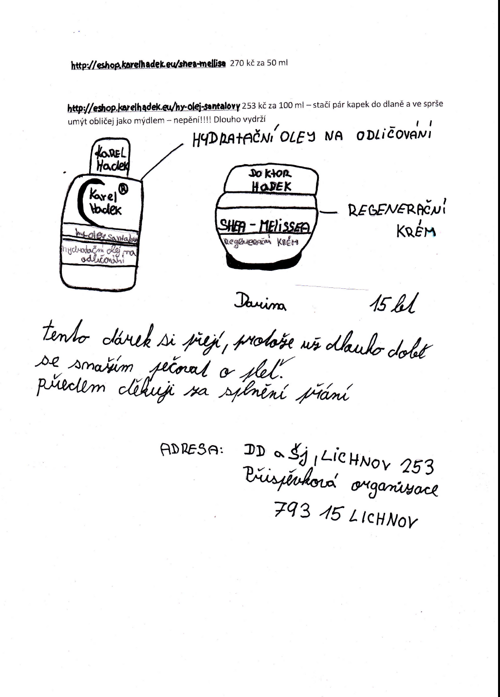 http://eshop.karelhadek.eu/shea-mellisa 270 kč za 50 ml
http://eshop.karelhadek.eu/hy-olej-santalovy 253 kč za 100 ml – stačí pár kapek do dlaně a ve sprše
umýt obličej jako mýdlem – nepění!!!! Dlouho vydrží
HYDRATAČNÍ OLEJ NA ODLIČOVÁNÍ
KAREL
Hadek
Karel®
Hadek
hy-olej santalov
hydratační olej na
odličování
DOKTOR
HADEK
SHEA - MELISSEA
regenerační KRÉM
REGENERAČNÍ
KRÉM
Darina 15 let
tento dárek si přeji, protože už dlouho dobu
se snažím pečovat o pleť.
předem děkuji za splnění přání
ADRESA: DD a Šj, LICHNOV 253
Příspěvková organizace
793 15 LICHNOV